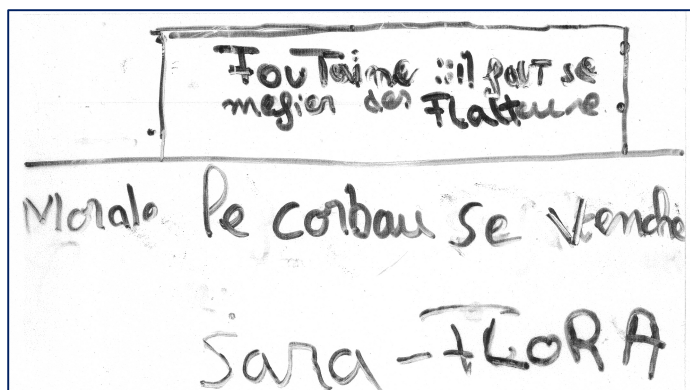 Fontaine : il fout se
mefier des Flatteure
Morale le corbau se venche
Sara - FLORA